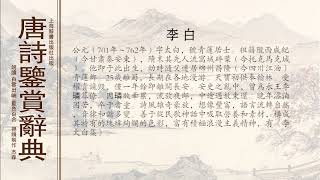 上海辭書出版社出版
唐詩鑒賞辭典
李白
公元(701年~762年)字太白,號青蓮居士。祖籍隴西成紀
(今甘肅秦安東),隋末其先人流寓碎葉(今
他即于此出生。幼時隨父遷居綿州昌隆(今四川江油)
青蓮鄉。25歲離蜀,長期在各地漫游。天寶初供奉翰林,受
權貴讒毀,僅一年餘即離開長安。安史之亂中,曾爲永王李
璘幕僚,因璘敗,流放夜郎,中途遇赦東還。晚年漂泊
困苦,卒于當塗。詩風雄奇豪放,想像豐富,語言流轉自然,
音律和諧多變。善於從民歌神話中吸取營養和素材,構成
其特有的瑰瑋絢爛的色彩,富有積極浪漫主義精神,有《李
太白集》